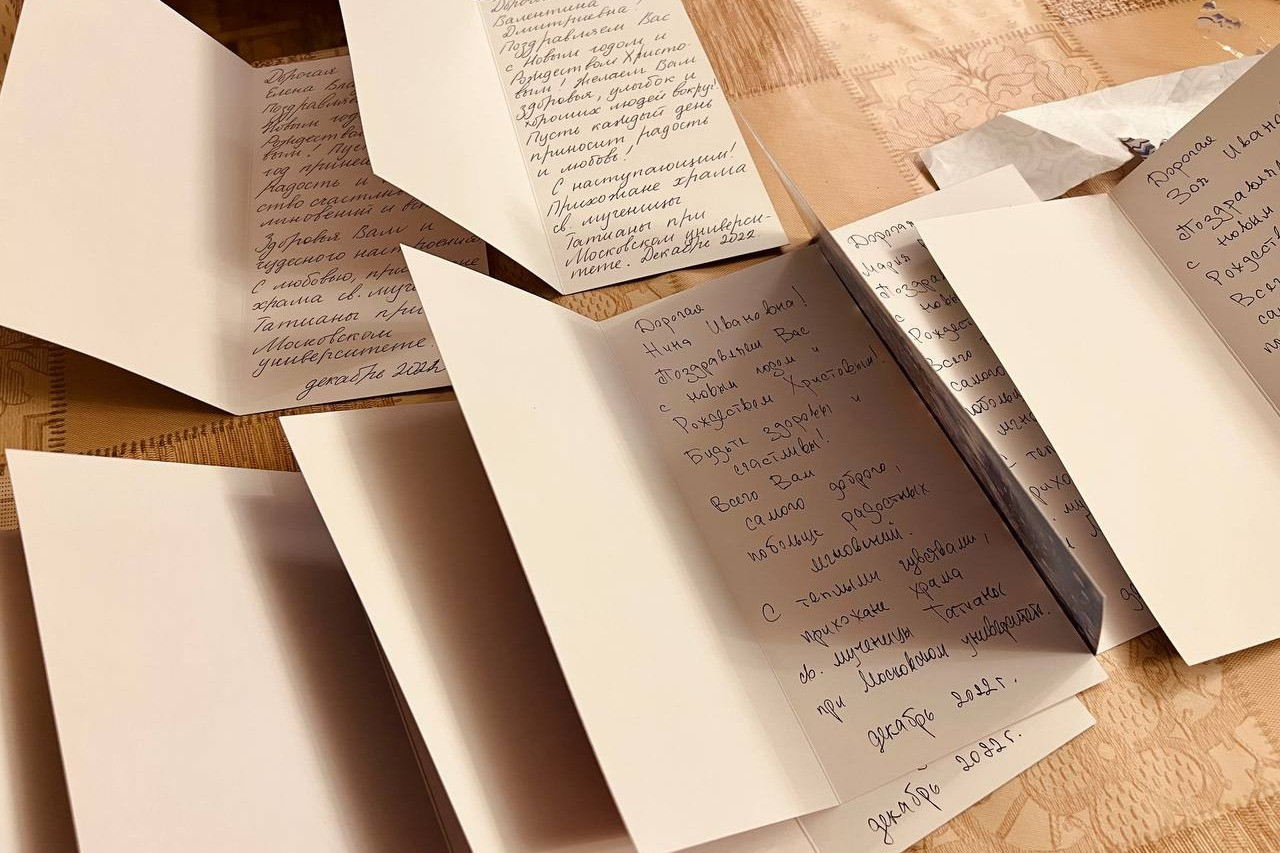 Дорогая
Елена
Поздравля
Новым год
Рождеством
вым! Пуст
год принес
радость и
ство счастли
мгновений и
Здоровья Вам и
чудесного настроения
С любовью,
храма св.
Татианы при
Московском
университете.
декабрь 2022
Дорогая
Валентина
Дмитриевна!
Поздравляем Вас
с Новым годом и
Рождеством Христо-
вым! Желаем Вам
здоровья, улыбок и
хороших людей вокруг!
Пусть каждый день
приносит радость
и любовь!
С наступающим!
Прихожане храма
св. мученицы
Татианы при
Московском универси-
тете. Декабрь 2022
Дорогая
Нина Ивановна!
Поздравляем Вас
с новым годом и
Рождеством Христовым!
Будьте здоровы и
счастливы!
Всего Вам
самого доброго,
побольше радостных
мгновений.
С теплыми чувствами,
прихожане храма
св. мученицы Татианы
при Московском университете.
декабрь 2022 г.
декабрь 2022 г.
Дорогая
Мария
Поздра
с новы
Рождест
Всего
самого
побольш
мгно
С теп
прихо
св. му
Дорогая
Зоя Ивано
Поздравля
с новым
Рождест
Всего
са
п